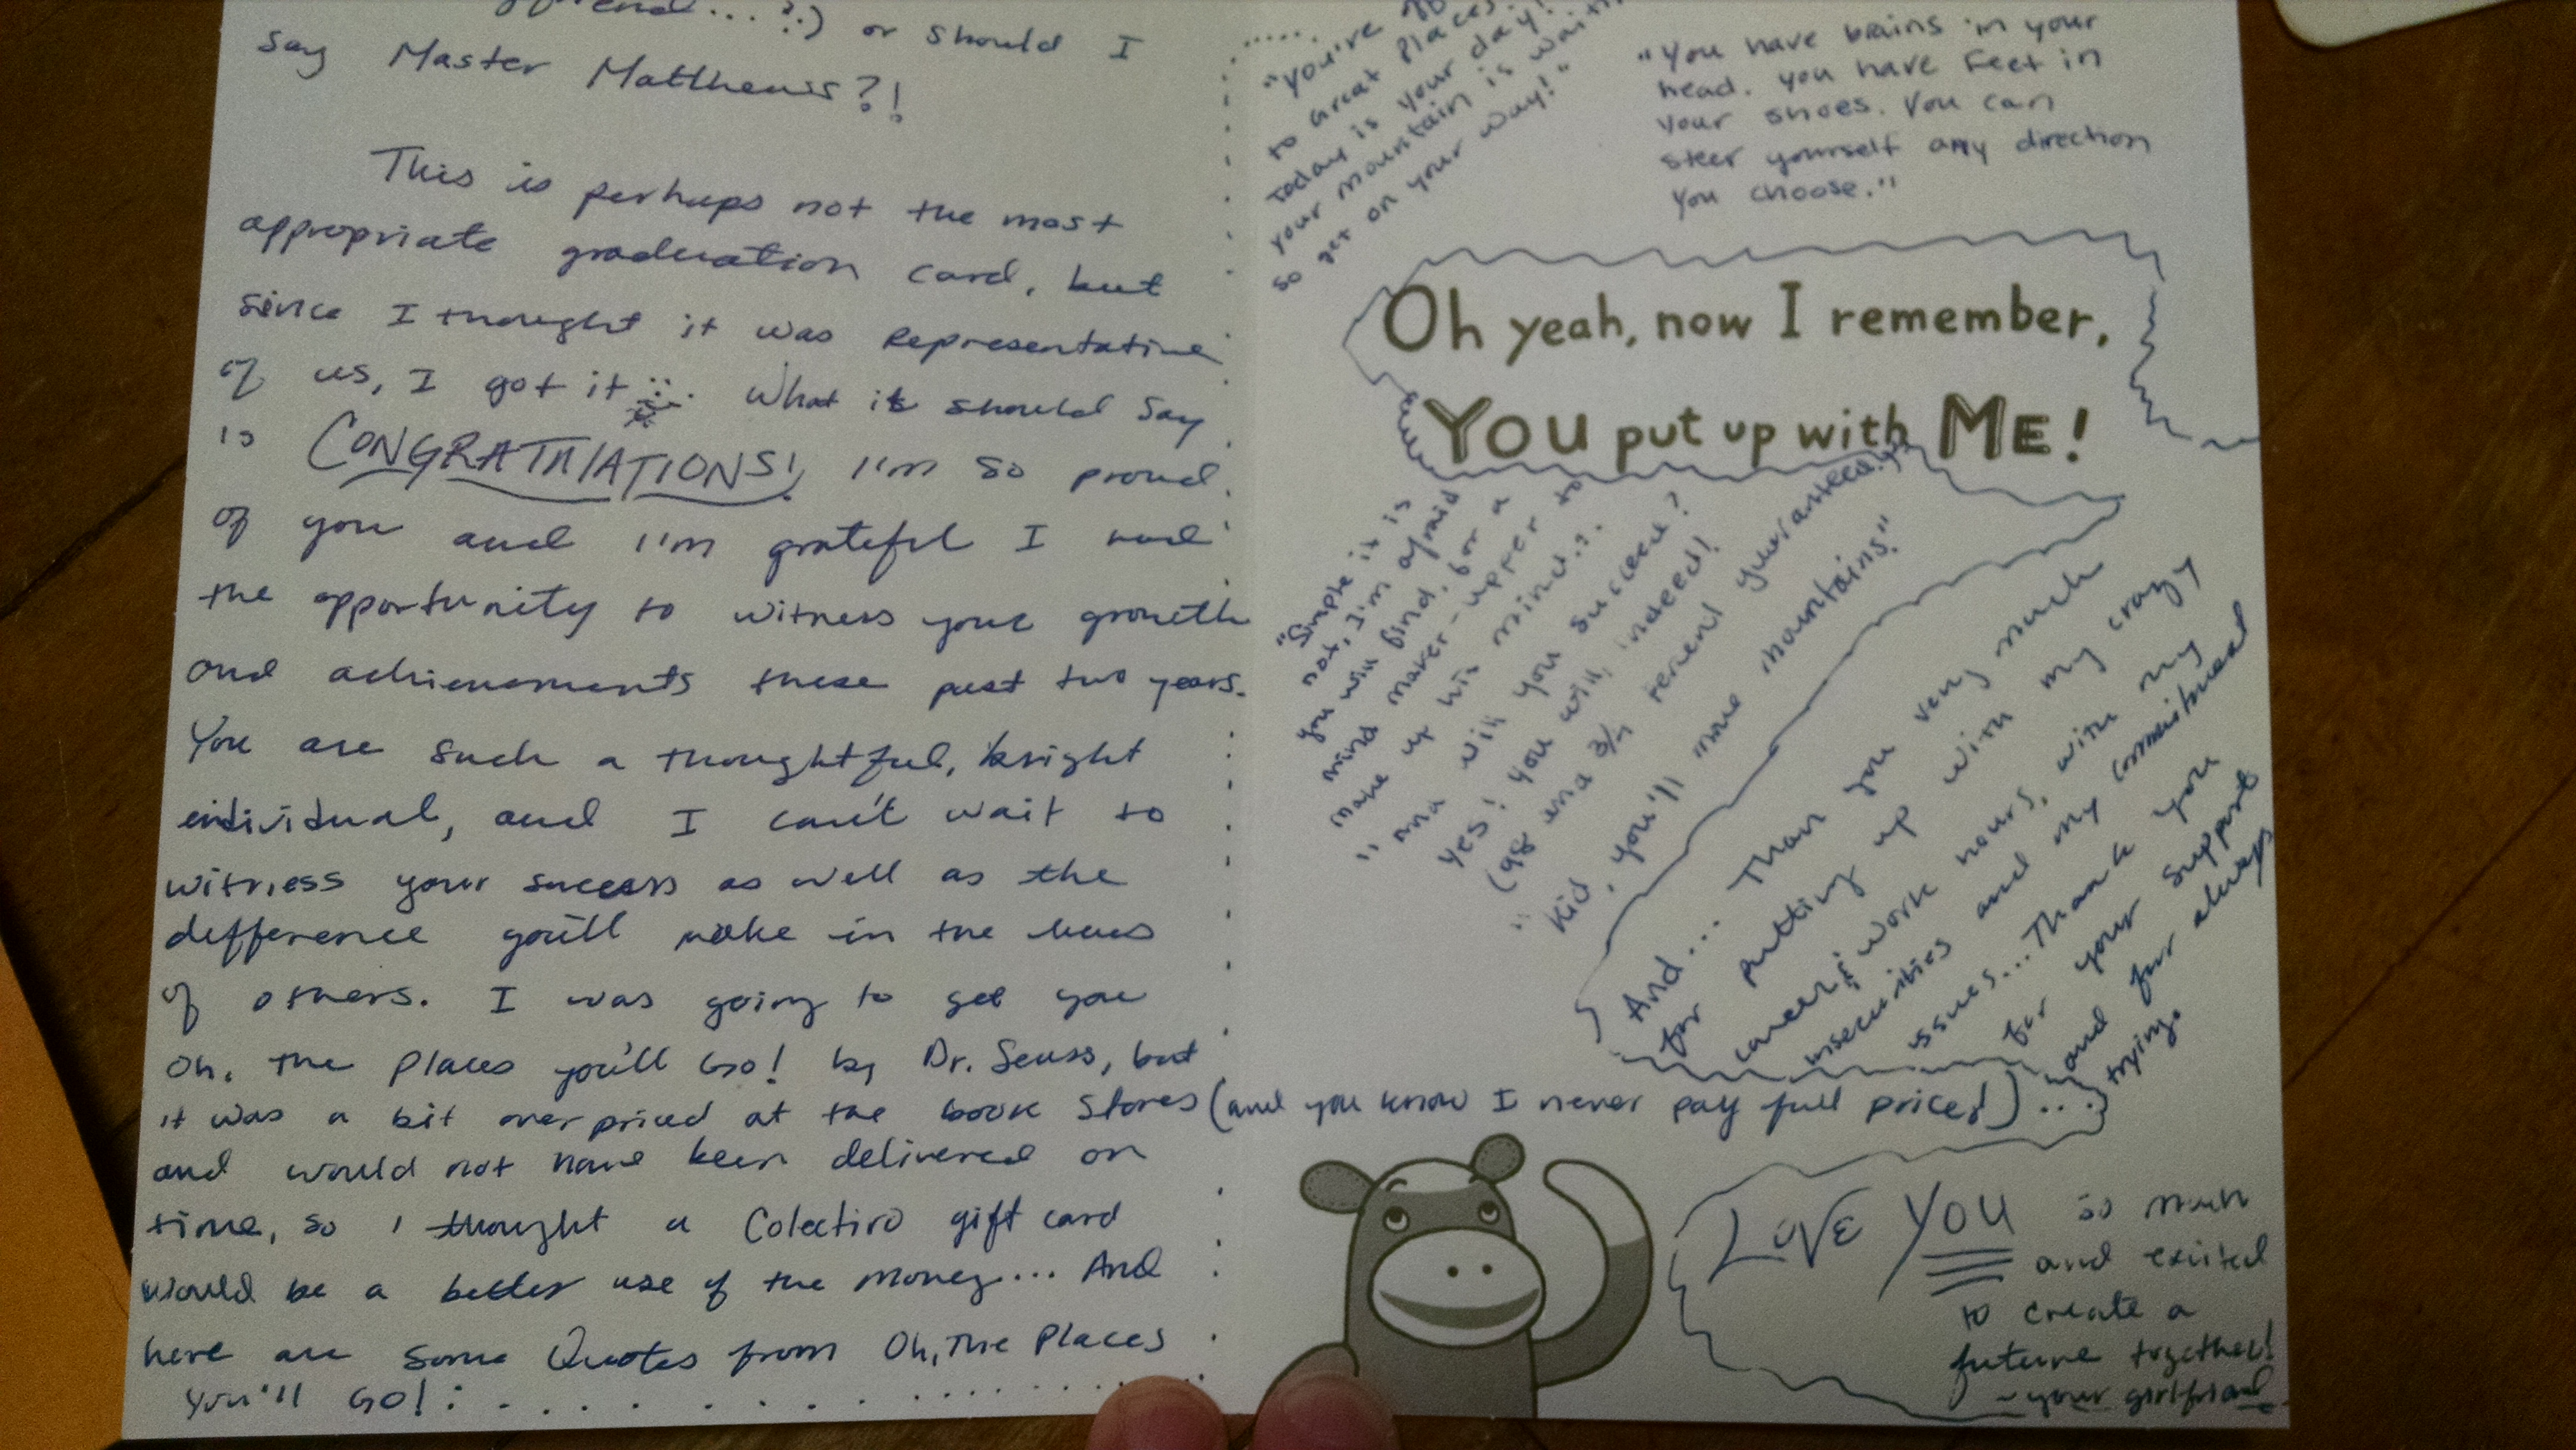 ...?:) or should I
say Master Matthews?!
This is perhaps not the most
appropriate graduation card, but
since I thought it was representative
of us, I got it :). What it should say
is CONGRATULATIONS! I'm so proud
of you and I'm grateful I had
the opportunity to witness your growth
and achievements these past two years.
You are such a thoughtful, bright
individual, and I can't wait to
witness your success as well as the
difference you'll make in the lives
of others. I was going to get you
Oh, the Places you'll Go! by Dr. Seuss, but
it was a bit overpriced at the book stores (and you know I never pay full price!)...
and would not have been delivered on
time, so I thought a Colectivo gift card
would be a better use of the money... And
here are some Quotes from Oh, The Places
You'll GO!: . . . . . . . . . . . . .
"You're
to Great Places.
Today is your day!
your mountain is
so get on your way!"
"You have brains in your
head. you have feet in
your shoes. You can
steer yourself any direction
you choose."
Oh yeah, now I remember,
YOU put up with ME!
"Simple it is
not, I'm afraid
you will find, for a
mind maker-upper to
make up his mind..."
"And will you succeed?
Yes! you will, indeed!
(98 and 3/4 percent guaranteed.)"
"Kid, you'll move mountains."
And... Thank you very much
for putting up with my crazy
career & work hours, with my
insecurities and my commitment
issues... Thank you
for your support
and for always
trying.
LOVE YOU so much
and excited
to create a
future together!
~your girlfriend